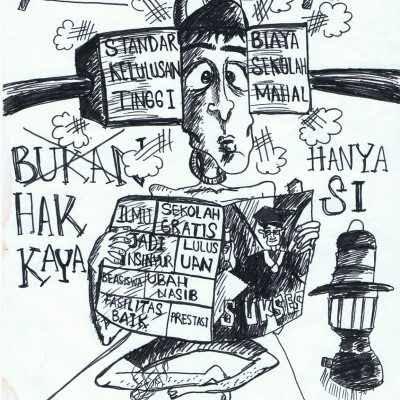 STANDAR
KELULUSAN
TINGGI
BIAYA
SEKOLAH
MAHAL
BUKAN
HAK
KAYA
HANYA
SI
ILMU
SEKOLAH
GRATIS
JADI
INSINYUR
LULUS
UAN
BEASISWA
UBAH
NASIB
FASILITAS
BAIK
PRESTASI
SUKSES